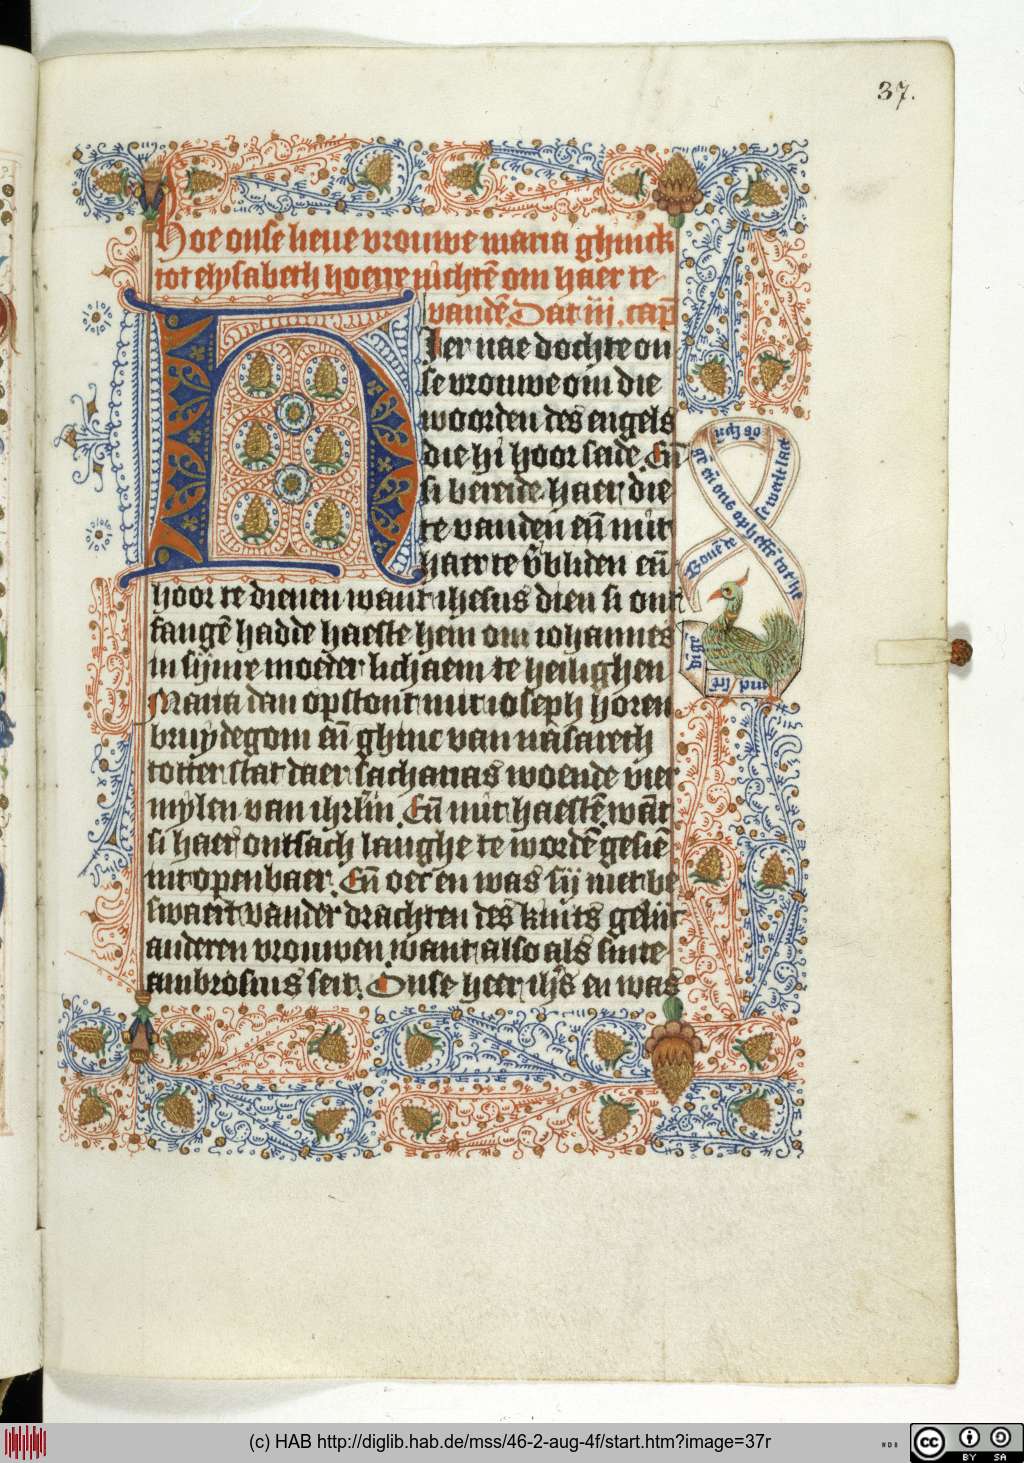 37.
Hoe onse lieue vrouwe maria ghinck
tot elysabeth hoerre nichtē om haer te
vandē. Dat iii. cap̄
Hier nae dochte on
se vrouwe om die
woorden des engels
die hi hoor seide. Eñ
si bereide haer die
te vanden eñ mit
haer te v̄bliden eñ
hoor te dienen want ihesus dien si ont
fangē hadde haeste hem om iohannes
in sijnre moeder lichaem te heilighen
Maria dan opstont mit ioseph horen
bruydegom eñ ghinc van nasareth
totter stat daer sacharias woende vier
mylen van ihrlm̄. Eñ mit haestē. wāt
si haer ontsach langhe te wordē gesiē
int openbaer. Eñ oec en was sij niet be
swaert vander drachten des kints gelijc
anderen vrouwen. want also als sinte
ambrosius seit. Onse heer ih̄s en was
(c) HAB http://diglib.hab.de/mss/46-2-aug-4f/start.htm?image=37r
WDB
cc
BY SA